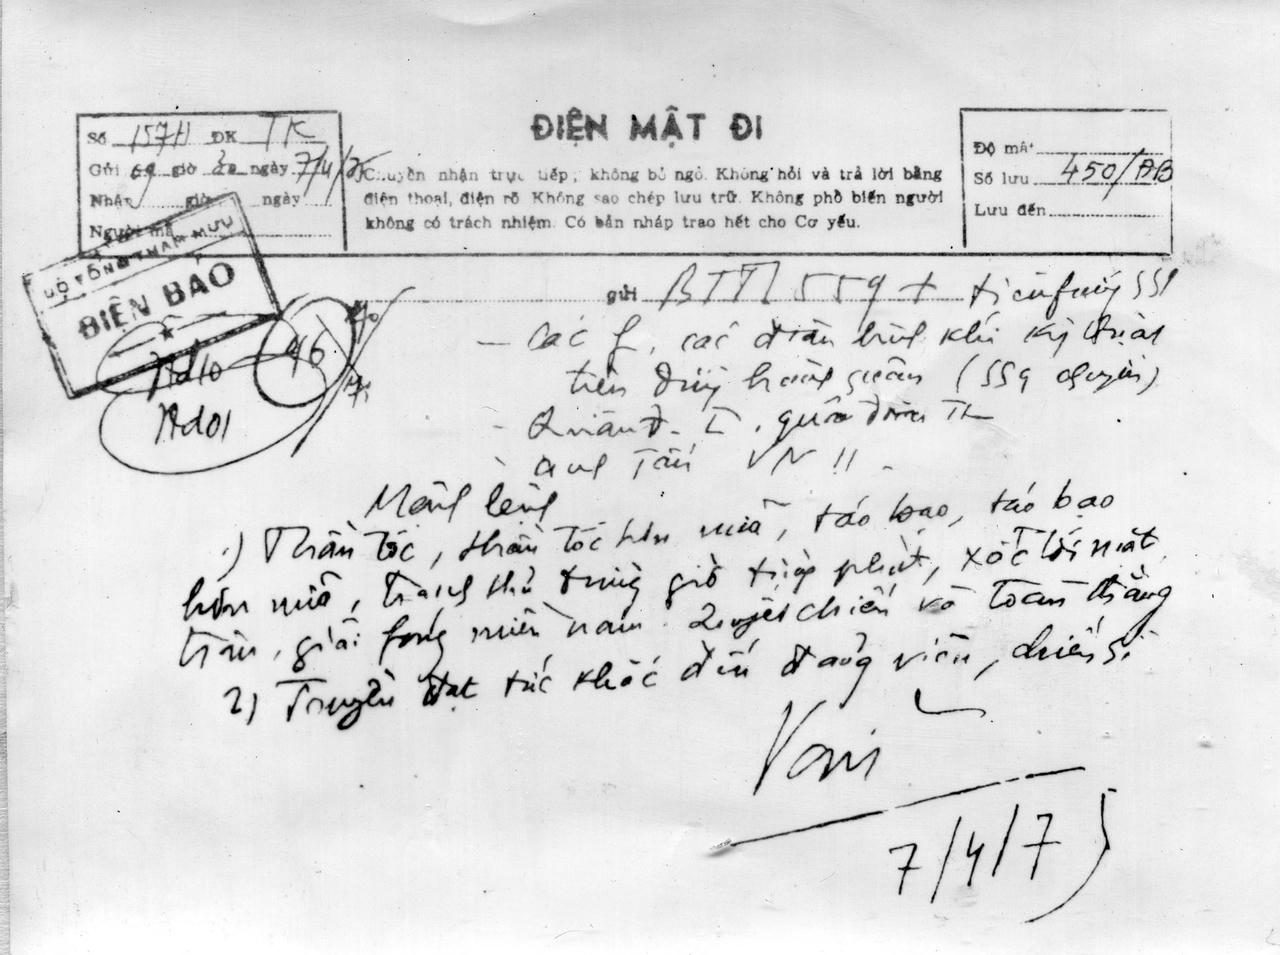 ĐIỆN MẬT ĐI
Số 157H ĐK TK
Gửi 09 giờ ngày 7/4/75
Nhận giờ ngày
Người mã
Chuyền nhận trực tiếp, không bỏ ngỏ. Không hỏi và trả lời bằng
điện thoại, điện rõ Không sao chép lưu trữ. Không phổ biến người
không có trách nhiệm. Có bản nháp trao hết cho Cơ yếu.
Độ mật
Số lưu 450/ĐB
Lưu đến
BỘ TỔNG THAM MƯU
ĐIỆN BÁO
46
gửi BTTL 559 + tiền phương 559
- Các f, các đoàn binh khí kỹ thuật
trên đường hành quân (559 chuyển)
- Quân đ. I, quân đoàn
- Anh Tấn VN !!
Mệnh lệnh
1) Thần tốc, thần tốc hơn nữa, táo bạo, táo bạo
hơn nữa, tranh thủ từng giờ từng phút, xốc tới mặt
trận, giải fóng miền nam. Quyết chiến và toàn thắng
2) Truyền đạt tức khắc đến đảng viên, chiến sĩ
Văn
7/4/75